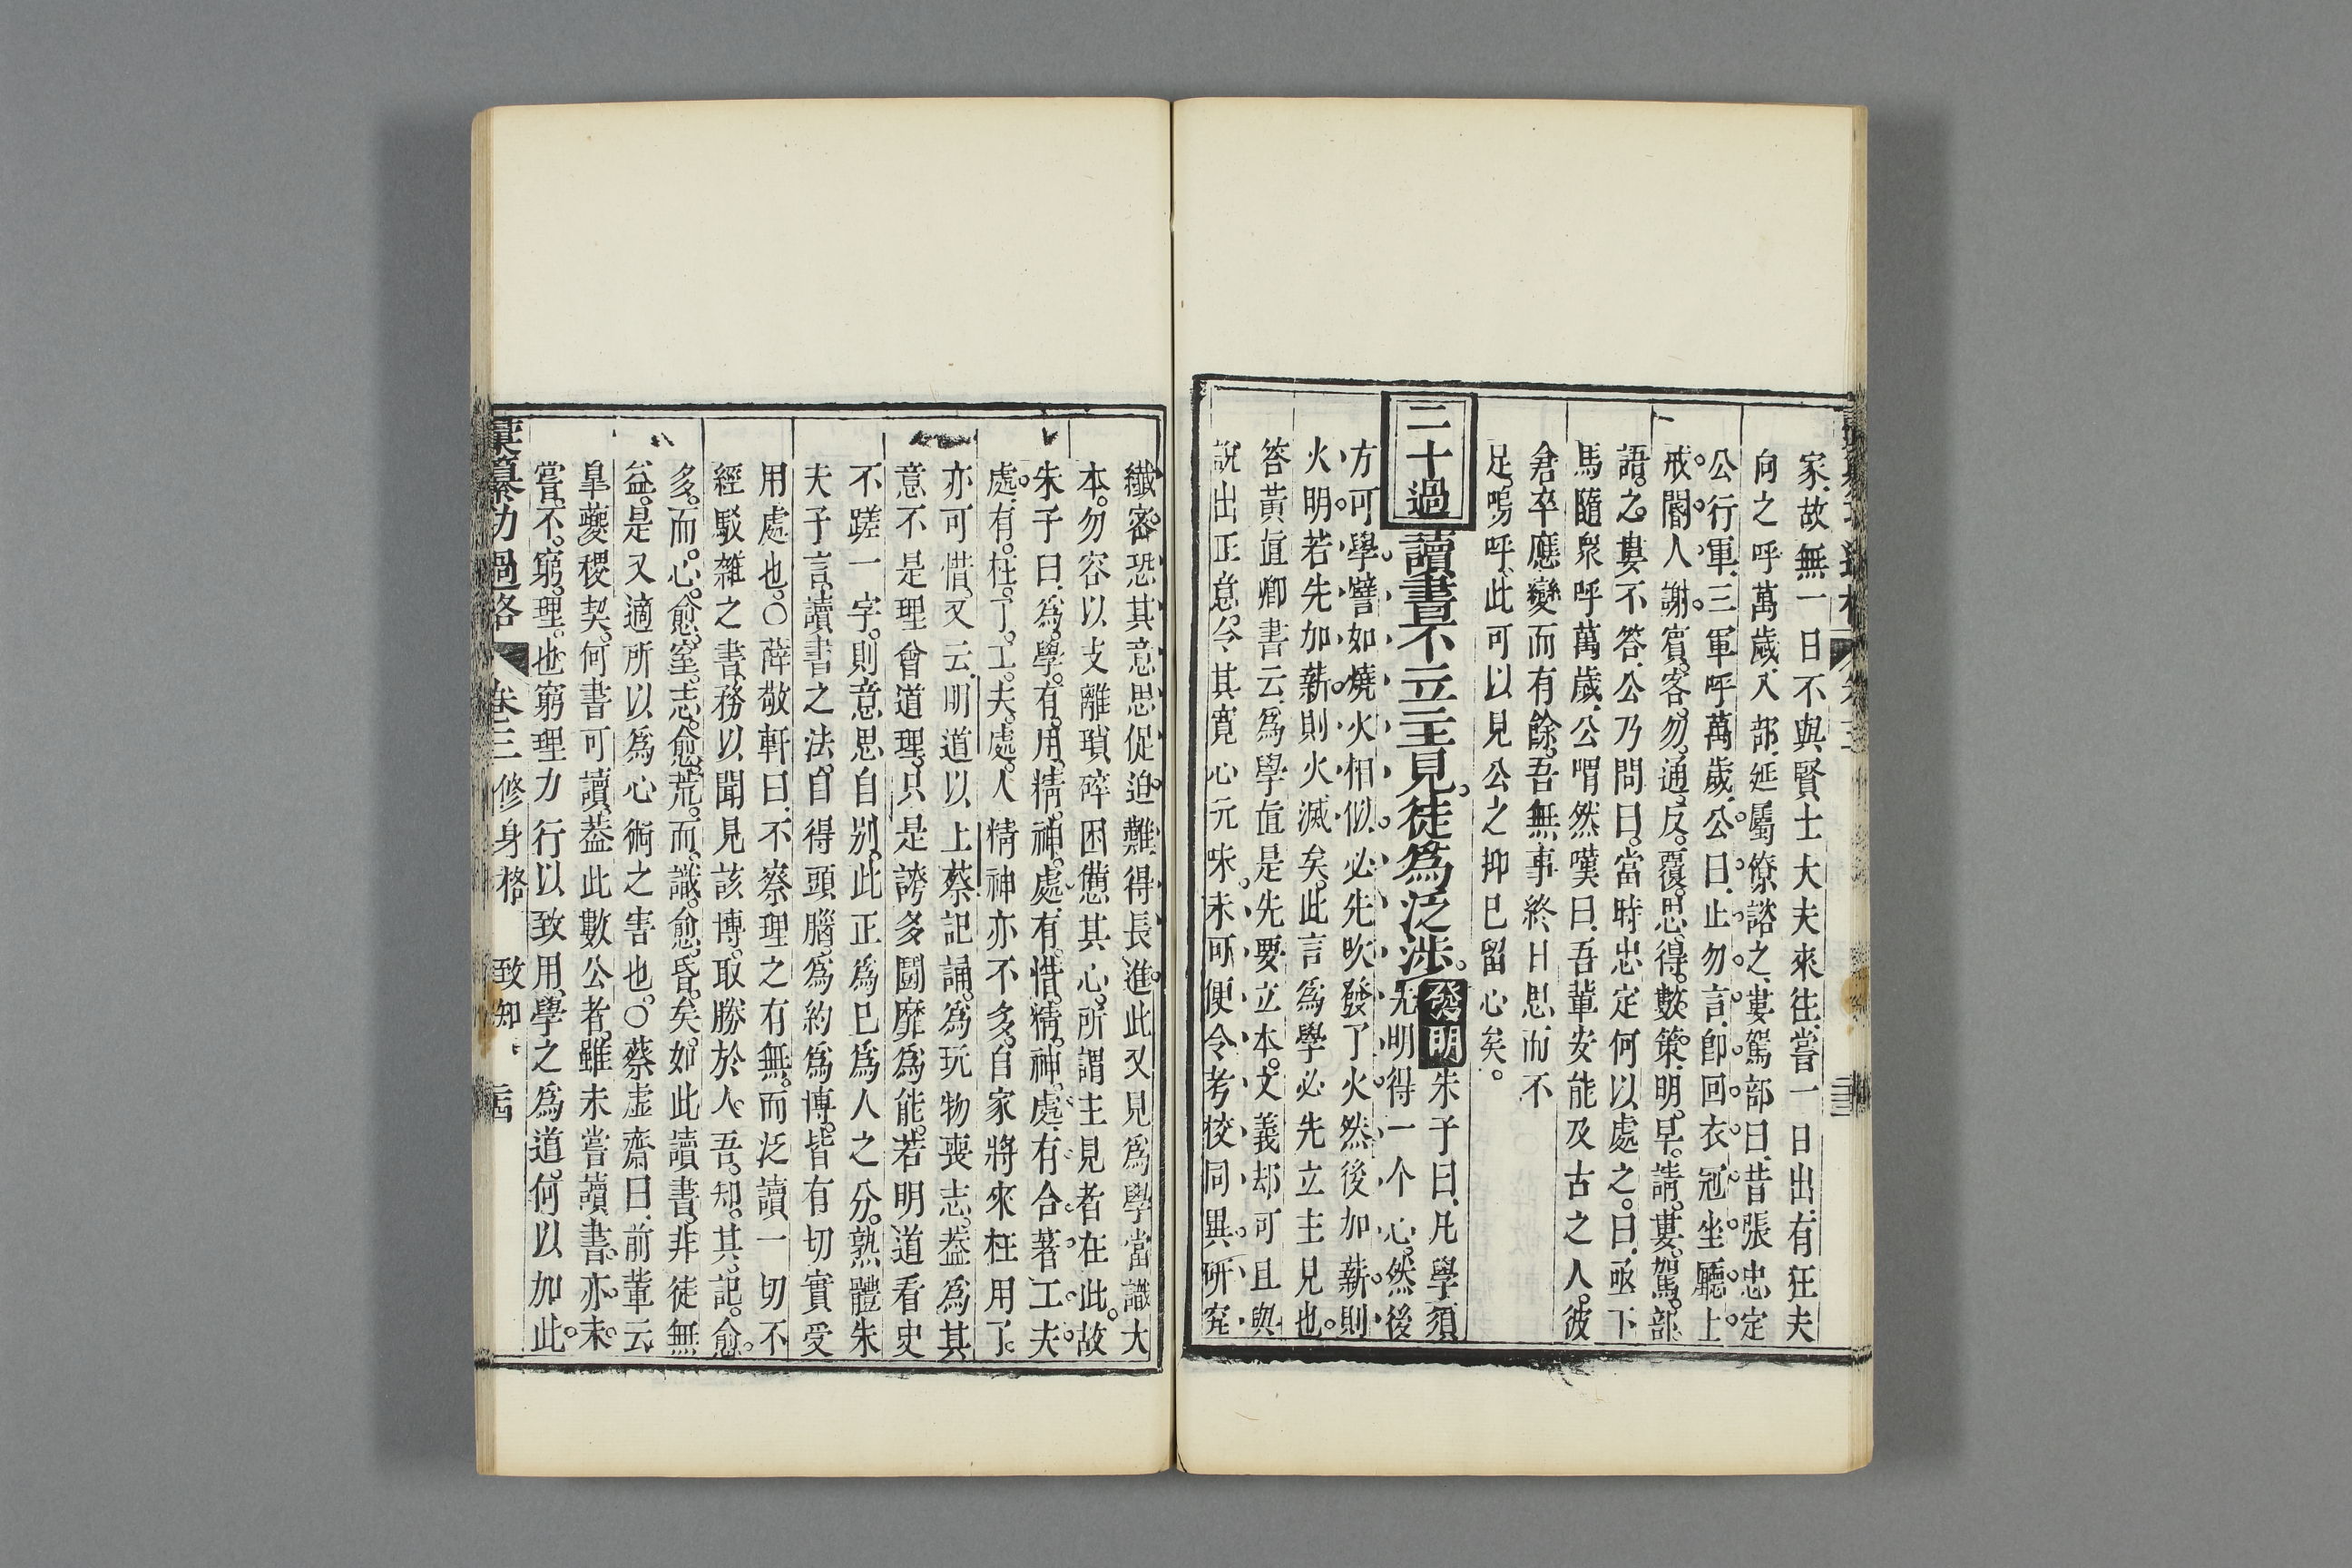 家故無一日不與賢士大夫來往嘗一日出有狂夫
向之呼萬歲入部延屬僚諮之婁駕部曰昔張忠定
公行軍三軍呼萬歲公曰止勿言卽回衣冠坐廳上
戒閽人謝賓客勿通反覆思得數策明早請婁駕部
語之婁不答公乃問曰當時忠定何以處之曰亟下
馬隨衆呼萬歲公喟然嘆曰吾輩安能及古之人彼
倉卒應變而有餘吾無事終日思而不
足嗚呼此可以見公之抑已留心矣
二十過讀書不立主見徒爲泛涉發明朱子曰凡學須
先明得一个心然後
方可學譬如燒火相似必先吹發了火然後加薪則
火明若先加薪則火滅矣此言爲學必先立主見也
答黃直卿書云爲學直是先要立本文義却可且與
說出正意令其寬心元味未可便令考校同異研究
纖密恐其意思促迫難得長進此又見爲學當識大
本勿容以支離瑣碎困憊其心所謂主見者在此故
朱子曰爲學有用精神處有惜精神處有合著工夫
處有枉了工夫處人精神亦不多自家將來枉用了
亦可惜又云明道以上蔡記誦爲玩物喪志葢爲其
意不是理會道理只是誇多鬭靡爲能若明道看史
不蹉一字則意思自别此正爲已爲人之分熟體朱
夫子言讀書之法自得頭腦爲約爲博皆有切實受
用處也○薛敬軒曰不察理之有無而泛讀一切不
經駁雜之書務以聞見該博取勝於人吾知其記愈
多而心愈窒志愈荒而識愈昏矣如此讀書非徒無
益是又適所以爲心術之害也○蔡虛齋曰前輩云
皐夔稷契何書可讀葢此數公者雖未嘗讀書亦未
嘗不窮理也窮理力行以致用學之爲道何以加此
彙纂功過格 卷三 修身格 致知